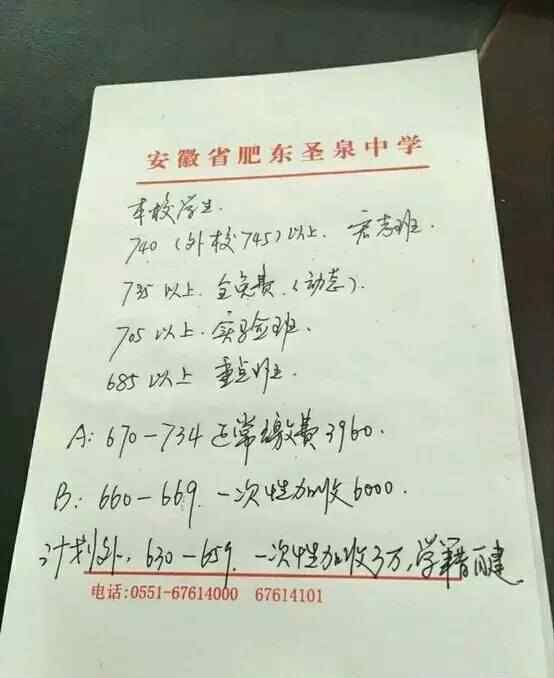 安徽省肥东圣泉中学
本校学生.
740（外校745）以上. 宏志班.
735以上. 全免费.（动态）.
705以上. 实验班.
685以上 重点班.
A: 670-734 正常缴费3960.
B: 660-669. 一次性加收6000.
计划外, 630-659. 一次性加收3万, 学籍可建.
电话:0551-67614000 67614101